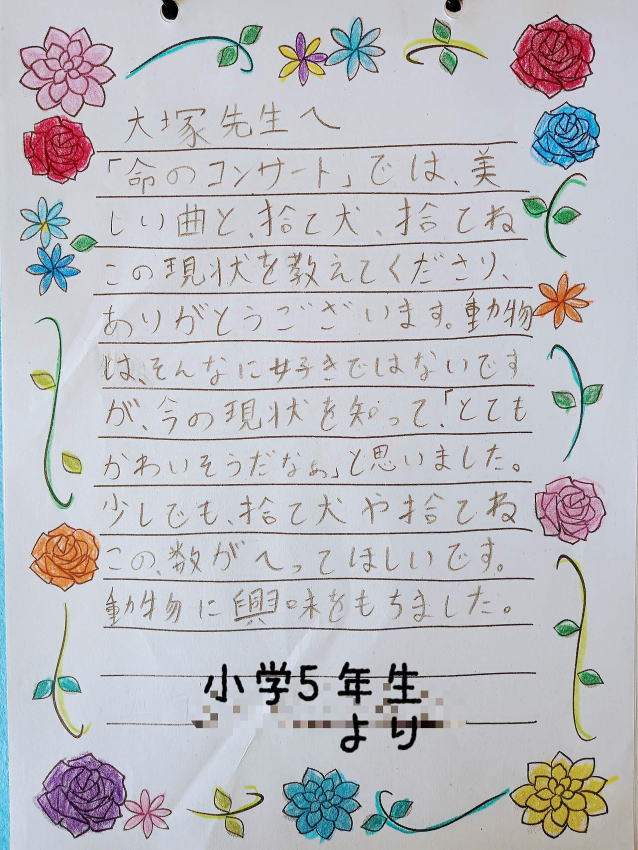 大塚先生へ
「命のコンサート」では、美
しい曲と、捨て犬、捨てね
この現状を教えてくださり、
ありがとうございます。動物
は、そんなに好きではないです
が、今の現状を知って、「とても
かわいそうだなぁ」と思いました。
少しでも、捨て犬や捨てね
この、数がへってほしいです。
動物に興味をもちました。
小学5年生
より